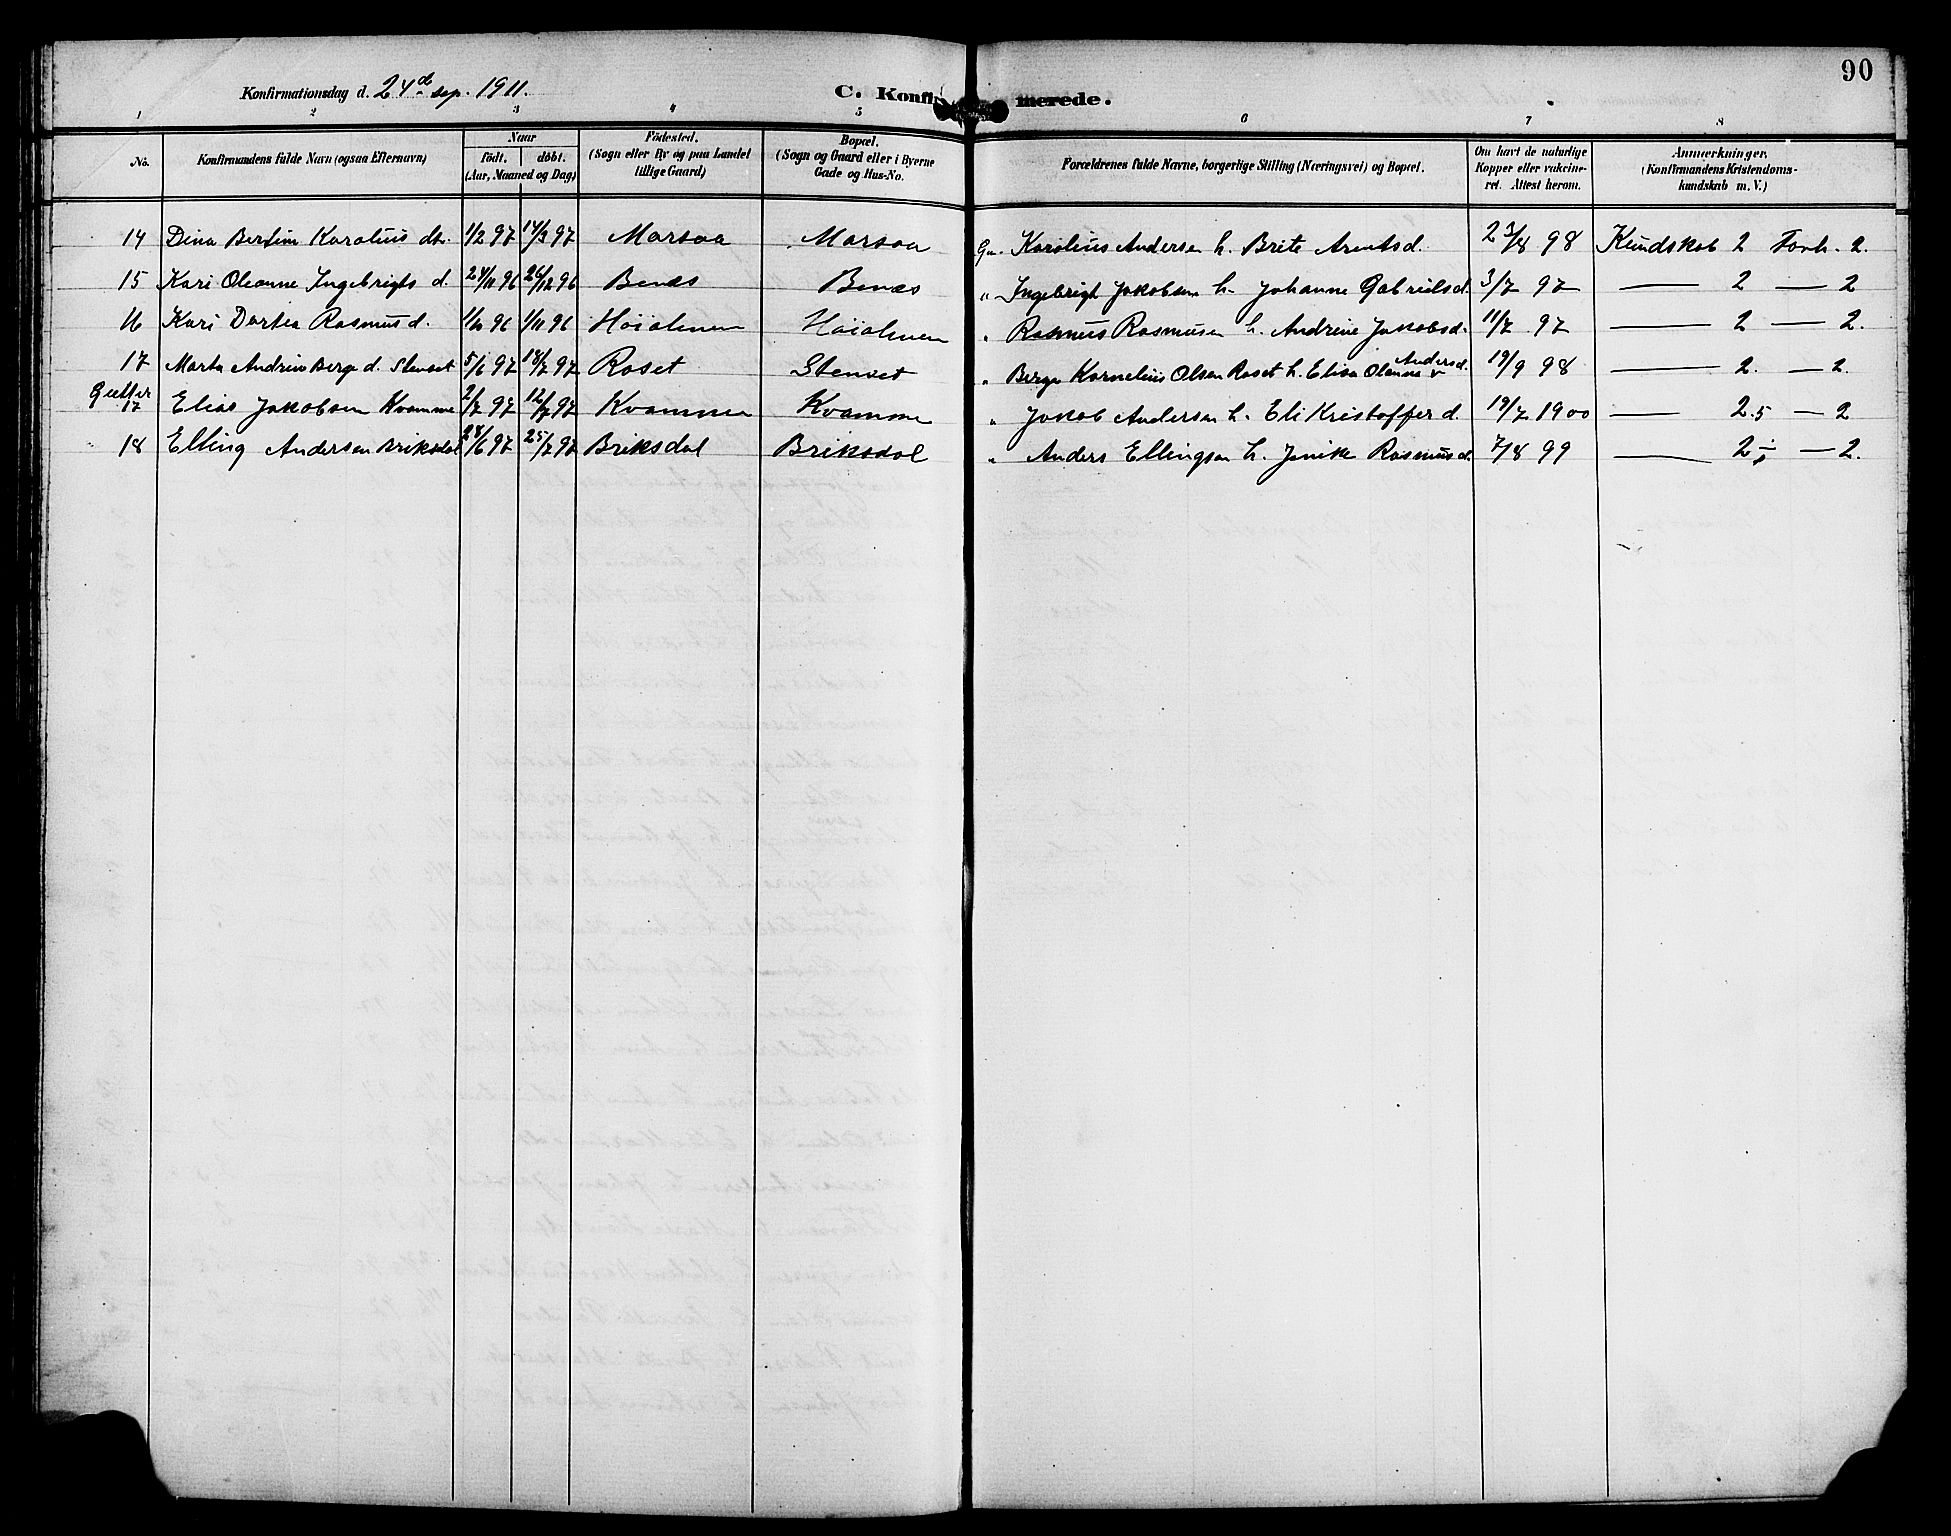 90
Konfirmationsdag d. 24d sep. 1911.
C. Konfirmerede.
1 2 3 4 5 6 7 8
No. Konfirmandens fulde Navn (ogsaa Efternavn) Naar födt. döbt. (Aar, Maaned og Dag) Födested. (Sogn eller By og paa Landet tillige Gaard) Bopæl. (Sogn og Gaard eller i Byerne Gade og Hus-No. Forældrenes fulde Navne, borgerlige Stilling (Næringsvei) og Bopæl. Om havt de naturlige Kopper eller vakcineret. Attest herom. Anmærkninger. (Konfirmandens Kristendomskundskab m. V.)
14 Dina Bertine Karolius dtr. 1/2 97 14/3 97 Marsaa Marsaa Gm. Karolius Andersen h. Brite Arntsd. 23/8 98 Kundskab 2 Forh. 2.
15 Kari Oleanne Ingebrigts d. 24/11 96 26/12 96 Benæs Benæs " Ingebrigt Jakobsen h. Johanne Gabrielsd. 3/7 97 — 2 — 2
16 Kari Dortea Rasmus d. 1/10 96 1/11 96 Höialmen Höialmen " Rasmus Rasmusen h. Andrine Jakobsd. 11/7 97 — 2 — 2.
17 Marta Andrine Berge d. Stenset 5/6 97 18/7 97 Roset Stenset " Berge Kornelius Olsen Roset h. Elisa Oleanna Andersd. 19/9 98 — 2. — 2.
Gutter
17 Elias Jakobsen Kvamme 2/7 97 12/7 97 Kvammen Kvamme " Jakob Andersen h. Eli Kristoffer d. 19/7 1900 — 2.5 — 2
18 Elling Andersen Briksdal 28/6 97 25/7 97 Briksdal Briksdal " Anders Ellingsen h. Jenike Rasmus d. 7/8 99 — 2 — 2.